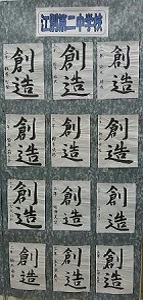 江別第二中学校
創造
創造
創造
創造
創造
創造
創造
創造
創造
創造
創造
創造